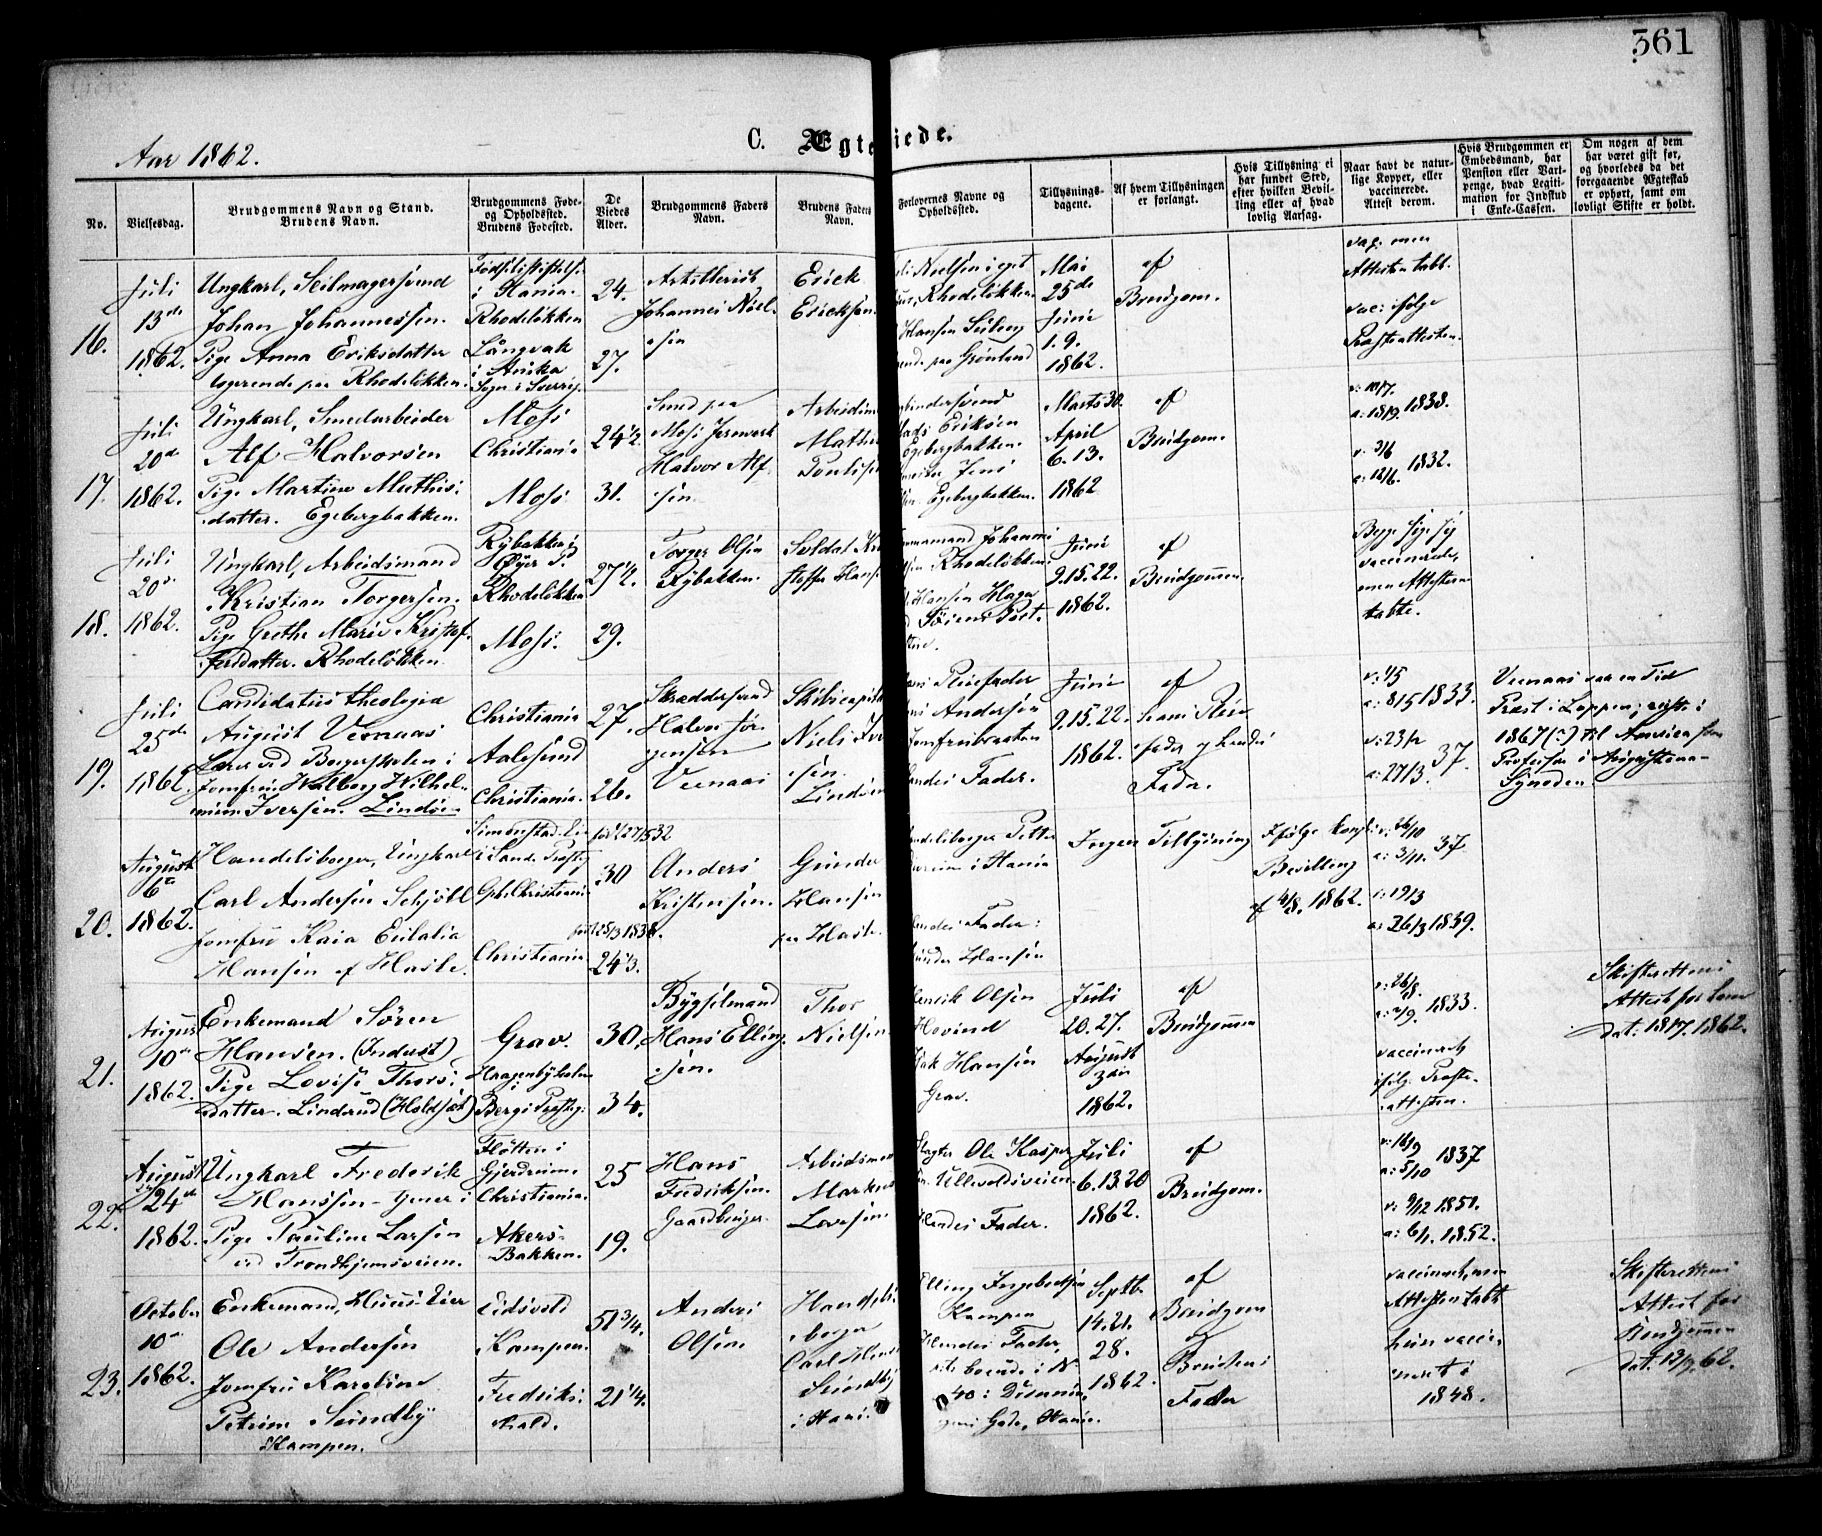 361
Aar 1862.
C. Ægte
iede.
No.
Vielsesdag.
Brudgommens Navn og Stand.
Brudens Navn.
Brudgommens Føde-
og Opholdssted.
Brudens Fødested.
De
Viedes
Alder.
Brudgommens Faders
Navn.
Brudens Faders
Navn.
Forlovernes Navne og
Opholdssted.
Tillysnings-
dagene.
Af hvem Tillysningen
er forlangt.
Hvis Tillysning ei
har fundet Sted,
efter hvilken Bevil-
ling eller af hvad
lovlig Aarsag.
Naar havt de natur-
lige Kopper, eller
vaccinerede.
Attest derom.
Hvis Brudgommen er
Embedsmand, har
Pension eller Vart-
penge, hvad Legiti-
mation for Indskud
i Enke-Cassen.
Om nogen af dem
har været gift før,
og hvorledes da det
foregaaende Ægteskab
er ophørt, samt om
lovligt Skifte er holdt.
16.
Juli
13de
1862.
Ungkarl, Seilmagersvend
Johan Johannessen.
Pige Anna Eriksdatter
logerende paa Rhodeløkken.
Fødselsstiftelse
i Xania.
Rhodeløkken
Långvak
i Sverrig
24.
27.
Artillerist
Johannes Niel-
sen
Erick
Ericksen
Nielsen i eget
Rhodeløkken
Hansen
paa Grønland
Mai
25de
Junie
1. 9.
1862.
af
Brudgom.
vac. men
Attesten tabt.
vac: ifølge
Præsteattesten.
17.
Juli
20de
1862.
Ungkarl, Smedarbeider
Alf Halvorsen
Pige Martine Mathis-
datter. Egebergbakken.
Moss
Christiania
Moss
24 1/2
31.
Smed paa
Moss Jernverk
Halvor Alf-
sen
Arbeidsm
Mathis
Poulse
Mads Eriksen
Egebergbakken.
Jens
Egebergbakken.
Marts 30.
April
6. 13.
1862
af
Brudgom.
a: 18/9 1838.
v: 3/6
a: 12/6. 1832.
18.
Juli
20de
1862.
Ungkarl, Arbeidsmand
Kristian Torgersen.
Pige Grethe Marie Kristof-
fersdatter. Rhodeløkken.
Rybakken i
Øyer P.
Rhodeløkken
Moss.
27 1/2.
29.
Torger Olsen
Rybakken.
Soldat Kri
stoffer Hans
Johannes
Rhodeløkken
Hansen Haga
Junie
9. 15. 22.
1862.
af
Brudgommen.
Begge sige sig
vaccinerede,
men Attesterne
tabte.
19.
Juli
25de
1862.
Candidatus theologia
August Veenaas
Lærer ved Borgerskolen i
Jomfru Walborg Wilhel-
mine Iversen. Lindøe
Christiania
Aalesund
Christiania.
27.
26.
Skræddersvend
Halvor Jør-
gensen
Veenaas
Skibscapit
Niels Iver
sen.
Lindøen
Pleiefader
Andersen
Fader.
Junie
9. 15. 22.
1862.
af
hans Pleie
fader og hendes
Fader.
a: 8/5 1833.
a: 27/3 37.
Veenaas var en Tid
Præst i Loppen; reiste i
1867(?) til Amerika som
Professor i Augustana-
Synoden
20.
August
6te
1862.
Handelsborger, Ungkarl
Carl Andersen Schjøll
Jomfru Kaia Eulalia
Hansen af Hasle.
Christiania
Christiania
30
24 1/3.
Anders
Kristensen.
Gunder
Hansen
paa Hasle.
Handelsborger Petter
i Xania
hendes Fader:
Gunder Hansen
Ingen
Tillysning
Ifølge Kongl:
Bevilling
af 4/8. 1862.
v: 26/10
a: 3/11. 37.
v: 19/3
a: 26/3 1839.
21.
August
10de
1862.
Enkemand Søren
Hansen. (Inderst)
Pige Lovise Thors-
datter. Linderud (Holdsfæst)
Grav.
30.
34.
Bygselmand
Hans Elling-
sen.
Thor
Nielsen
Henrik Olsen
Hovind
Isak Hansen
Grav.
Juli
20. 27.
August
3die
1862.
af
Brudgommen
v: 26/8.
a: 2/9. 1833.
vaccineret
ifølg. Præste-
attesten.
Skifterettens
Attest for ham
dat. 18/7. 1862.
22.
August
24de
1862.
Ungkarl Frederik
Hanssen
Pige Pauline Larsen
ved Trondhjemsveien.
Fløtten i
Gjerdrum
Christiania.
Akers-
Bakken.
25
19.
Hans
Fredriksen.
Gaardbruger.
Arbeidsman
Markus
Lovesen
Slagter Ole Kasper
Ullevoldsveien.
Hendes Fader.
Juli
6. 13. 20
1862.
af
Brudgom.
v: 16/9
a: 5/10 1837
v: 9/12 1851.
a: 6/1. 1852.
23.
October
10de
1862.
Enkemand, Huus-Eier
Ole Andersen
Jomfru Karoline
Petrine Sundby
Kampen.
Eidsvold
Kampen.
Fredriks-
hald.
51 3/4.
21 1/4.
Anders
Olsen
Handels-
borger
Carl Hans
Sundby
i Xania
Elling Ingebretsen
Kampen
Hendes Fader,
boende i N
40 i
Gade, Xania.
Septb.
14. 21.
28.
1862.
af
Brudgom
og
Brudens
Fader
vaccineret, men
Attesten tabt
hun vacci-
neret i
1848.
Skifterettens
Attest for
Brudgommen
dat. 13/9. 62.